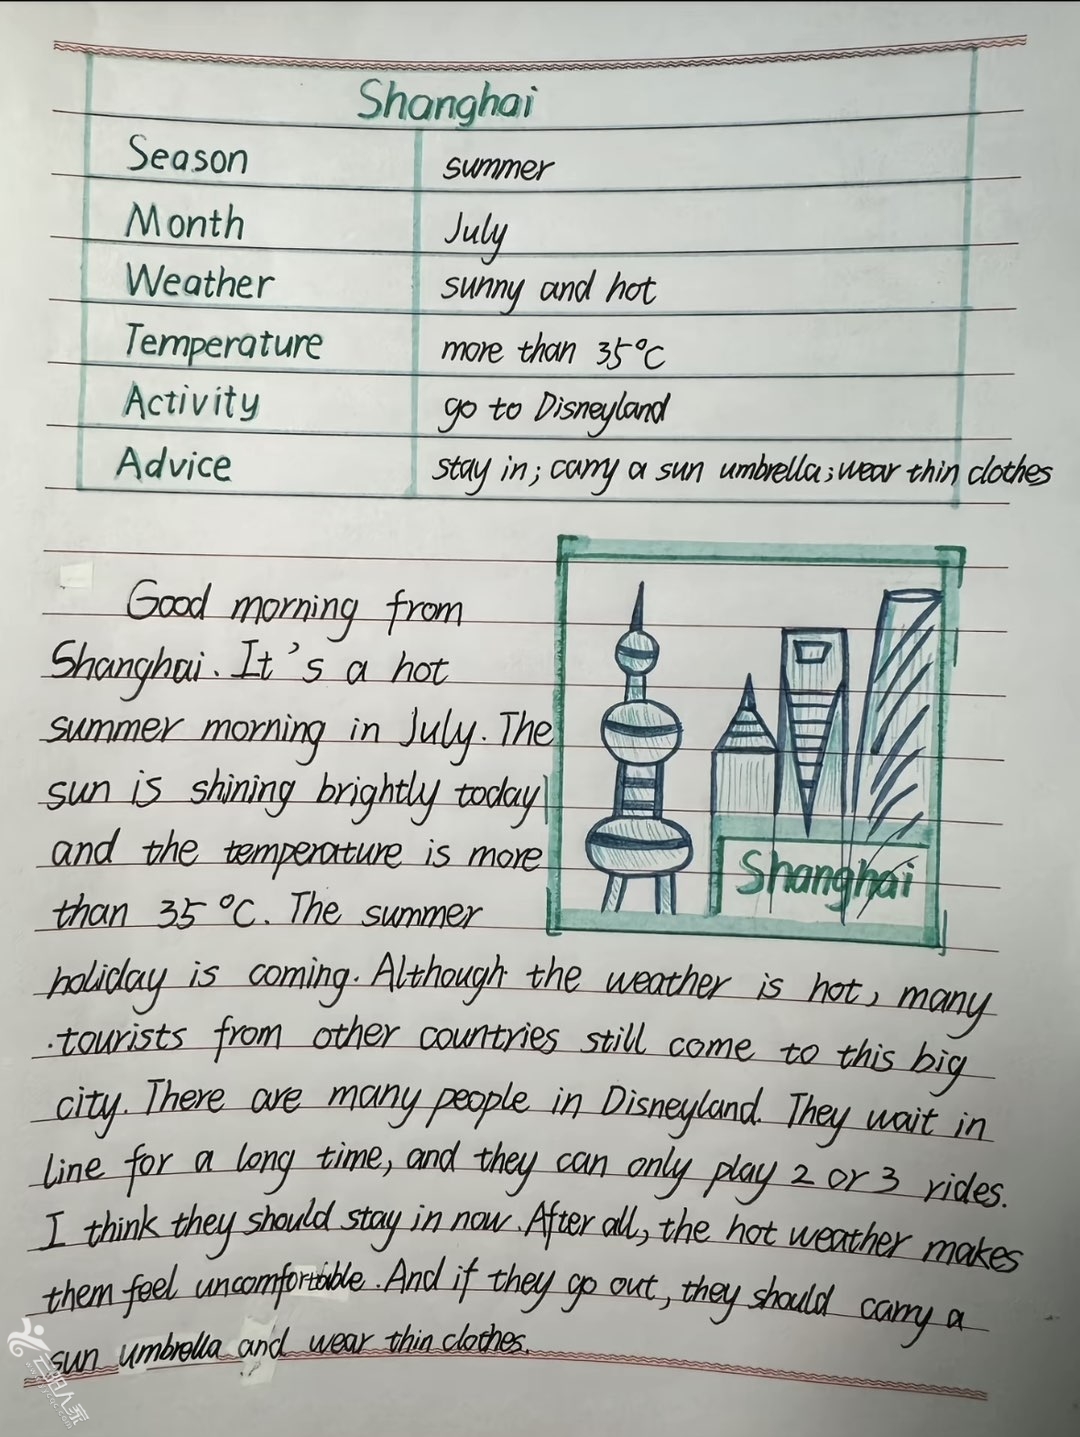 Shanghai
Season summer
Month July
Weather sunny and hot
Temperature more than 35°C
Activity go to Disneyland
Advice stay in; carry a sun umbrella; wear thin clothes
Good morning from
Shanghai. It's a hot
summer morning in July. The
sun is shining brightly today
and the temperature is more
than 35°C. The summer
Shanghai
holiday is coming. Although the weather is hot, many
tourists from other countries still come to this big
city. There are many people in Disneyland. They wait in
line for a long time, and they can only play 2 or 3 rides.
I think they should stay in now. After all, the hot weather makes
them feel uncomfortable. And if they go out, they should carry a
sun umbrella and wear thin clothes.